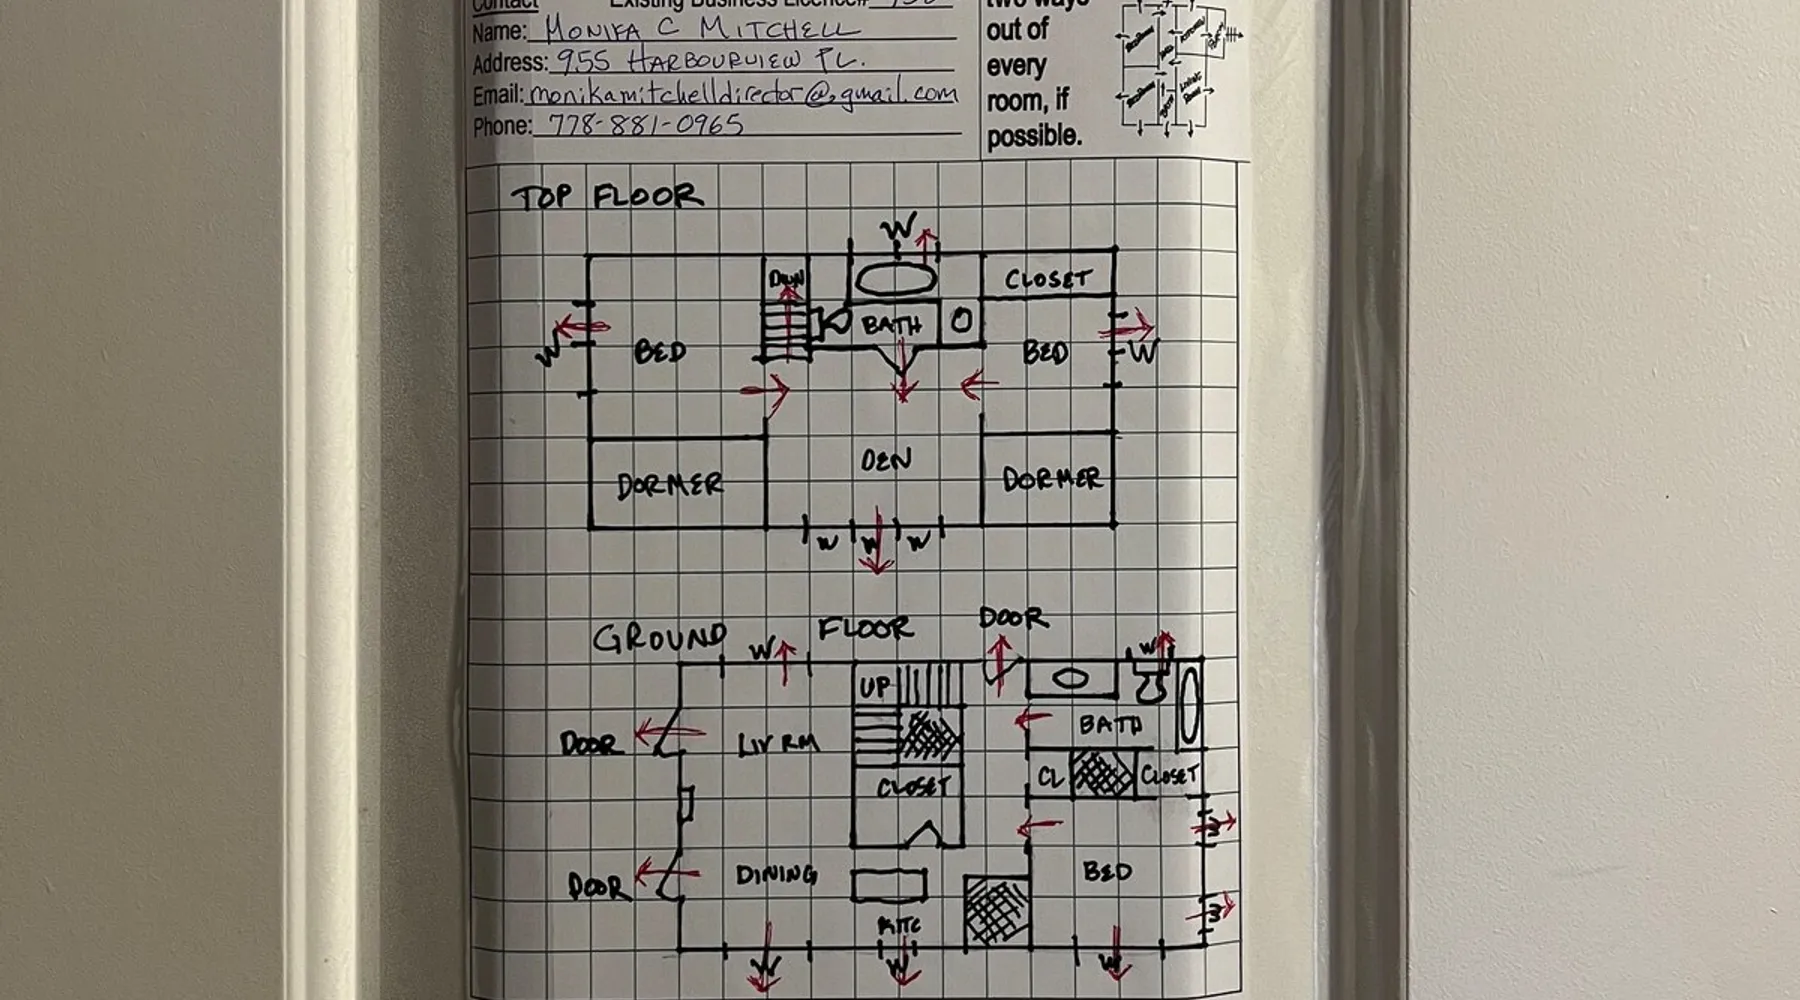 Contact Existing Business Licence#
Name: MONIKA C MITCHELL
Address: 955 HARBOURVIEW PL.
Email: monikamitchelldirector@gmail.com
Phone: 778-881-0965
two ways
out of
every
room, if
possible.
BEDROOM
KITCHEN
BEDROOM
LIVING ROOM
TOP FLOOR
W
DWN
CLOSET
BATH
W
BED
BED
W
DEN
DORMER
DORMER
W W W
GROUND FLOOR DOOR
W
W
UP
BATH
DOOR
LIV RM
CL
CLOSET
CLOSET
W
DINING
BED
DOOR
W
KITC
W
W
W